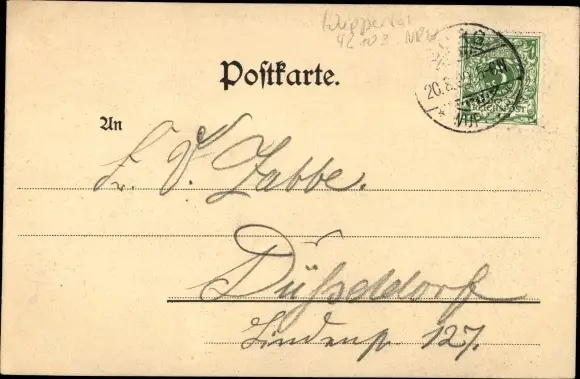 Wuppertal
42103 NRW
Postkarte.
20.8.
An
Fr. V. Zabbe.
Düsseldorf
Lindenstr 127.